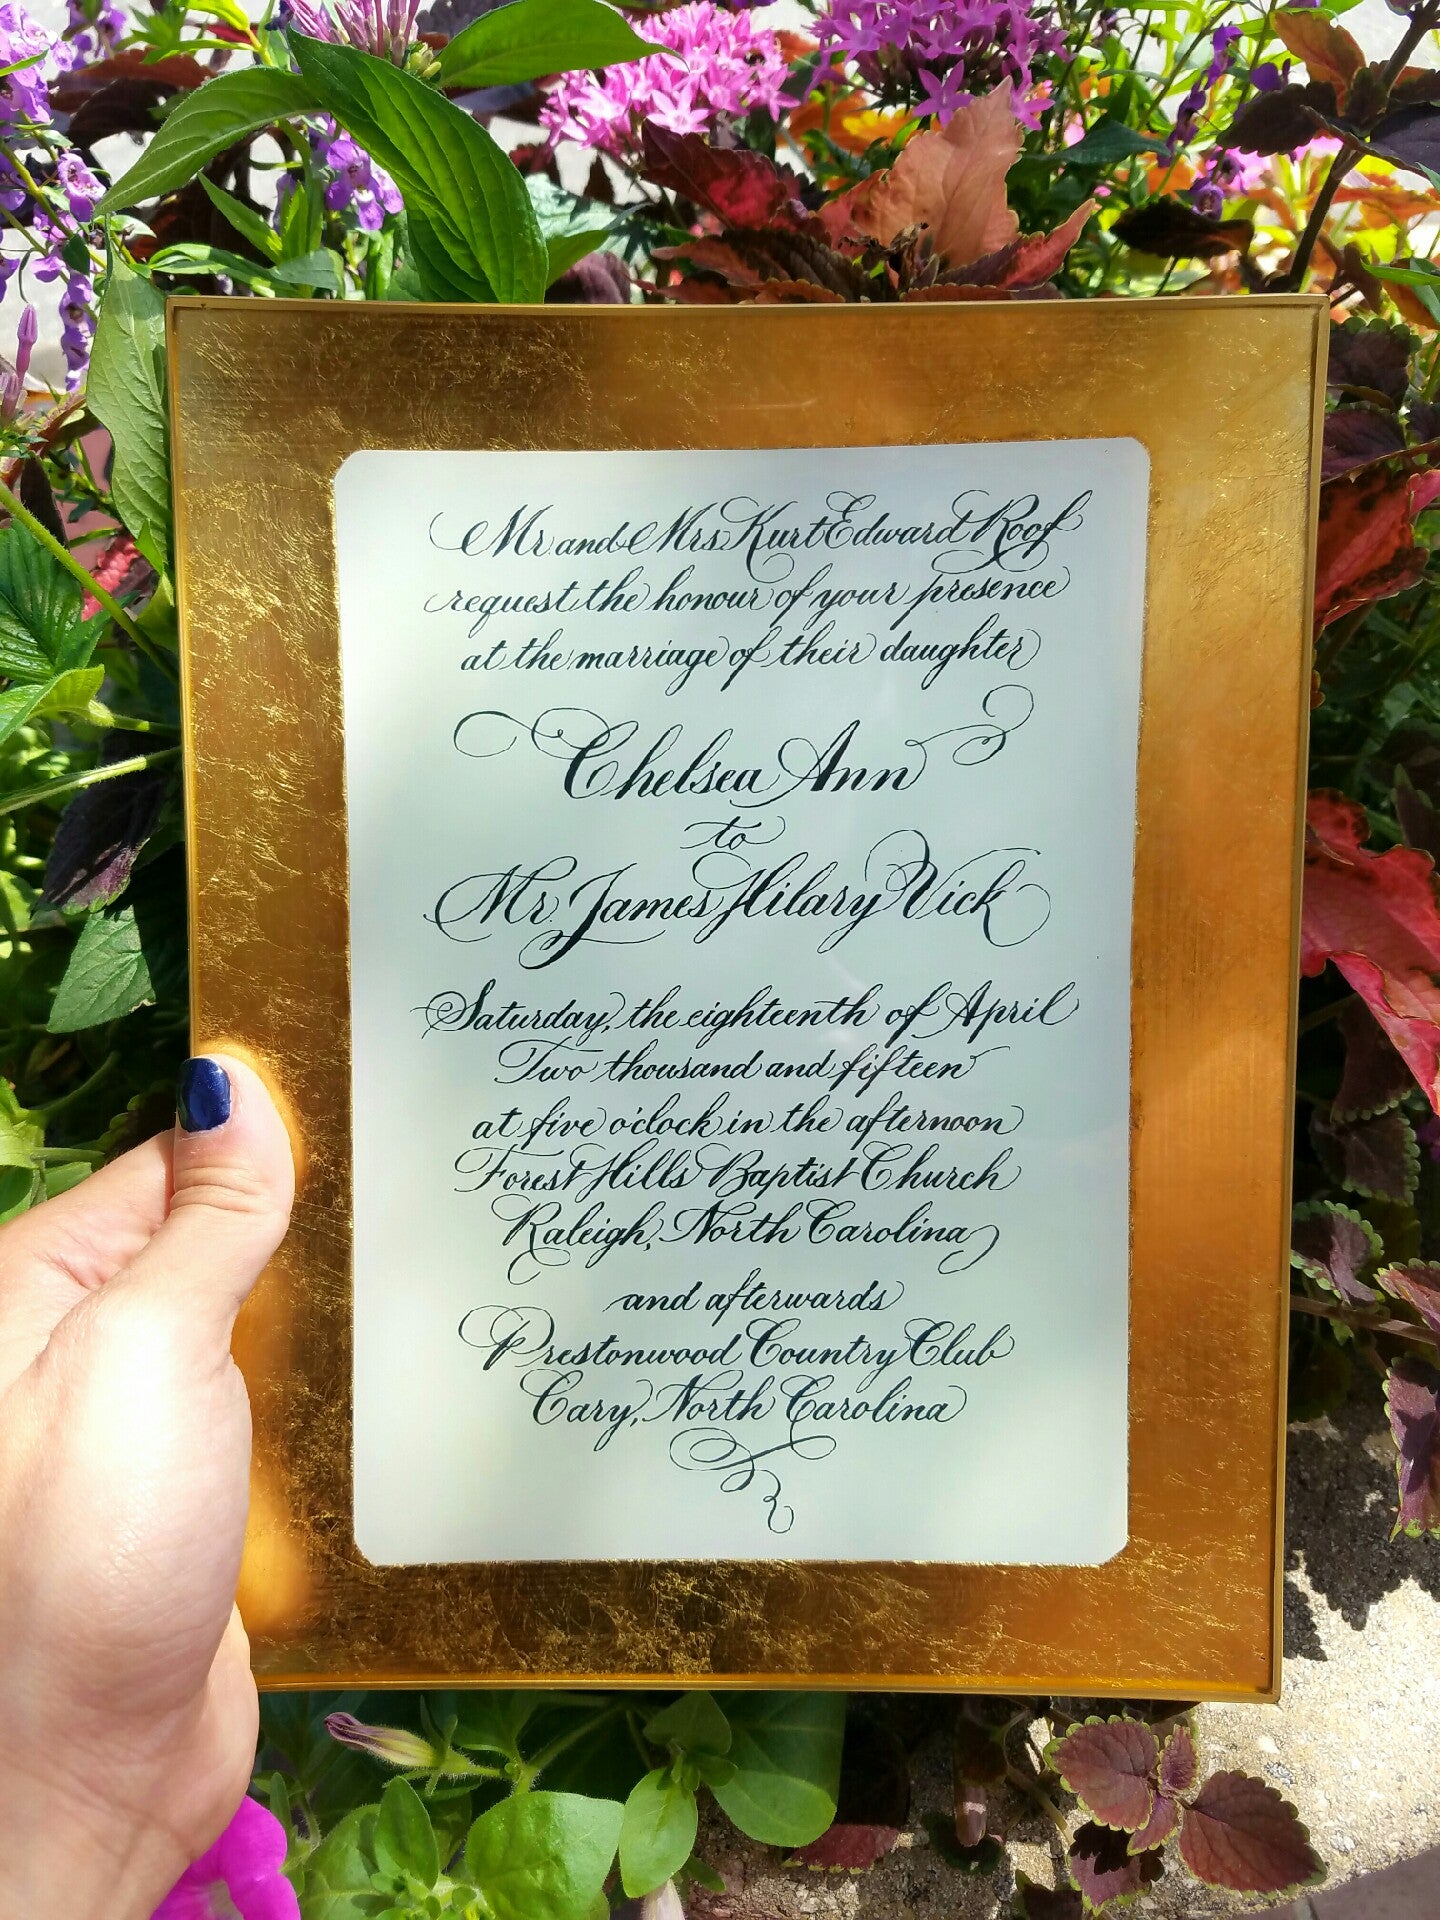 Mr and Mrs Kurt Edward Roof
request the honour of your presence
at the marriage of their daughter
Chelsea Ann
to
Mr. James Hilary Vick
Saturday, the eighteenth of April
Two thousand and fifteen
at five o'clock in the afternoon
Forest Hills Baptist Church
Raleigh, North Carolina
and afterwards
Prestonwood Country Club
Cary, North Carolina